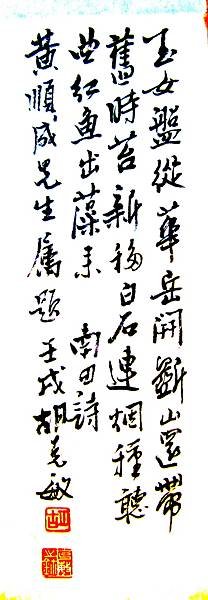 玉女盤從華岳開斲山還帶
舊時苔新移白石連烟種聽
曲紅魚出藻來 南田詩
黃順成先生属題 壬戌胡克敏